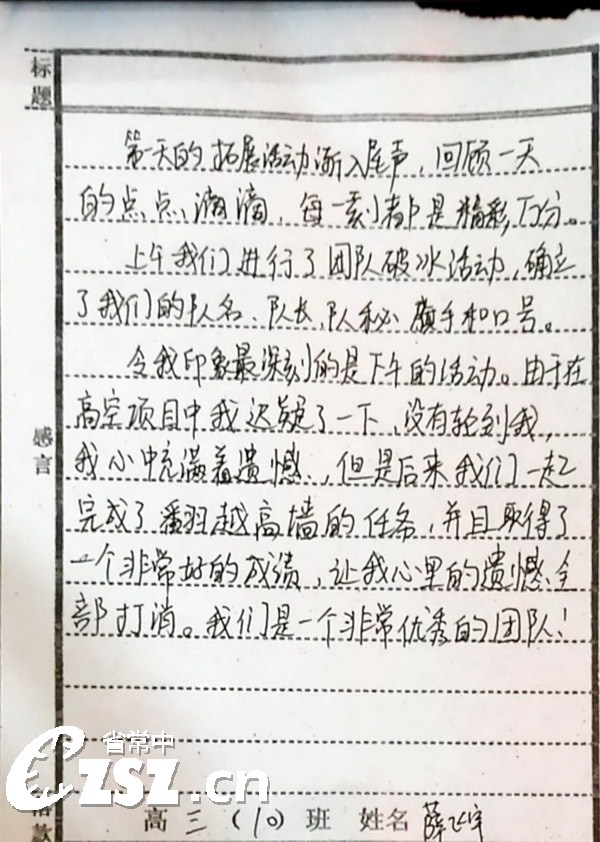 标题
第一天的拓展活动渐入尾声，回顾一天
的点点滴滴，每一刻都是精彩万分。
上午我们进行了团队破冰活动，确立
了我们的队名、队长、队秘、旗手和口号。
令我印象最深刻的是下午的活动。由于在
高空项目中我迟疑了一下，没有轮到我，
感言
我心中充满着遗憾，但是后来我们一起
完成了翻越高墙的任务，并且取得了
一个非常好的成绩，让我心里的遗憾全
部打消。我们是一个非常优秀的团队！
省常中
czsz.cn
落款
高三（10）班 姓名 薛